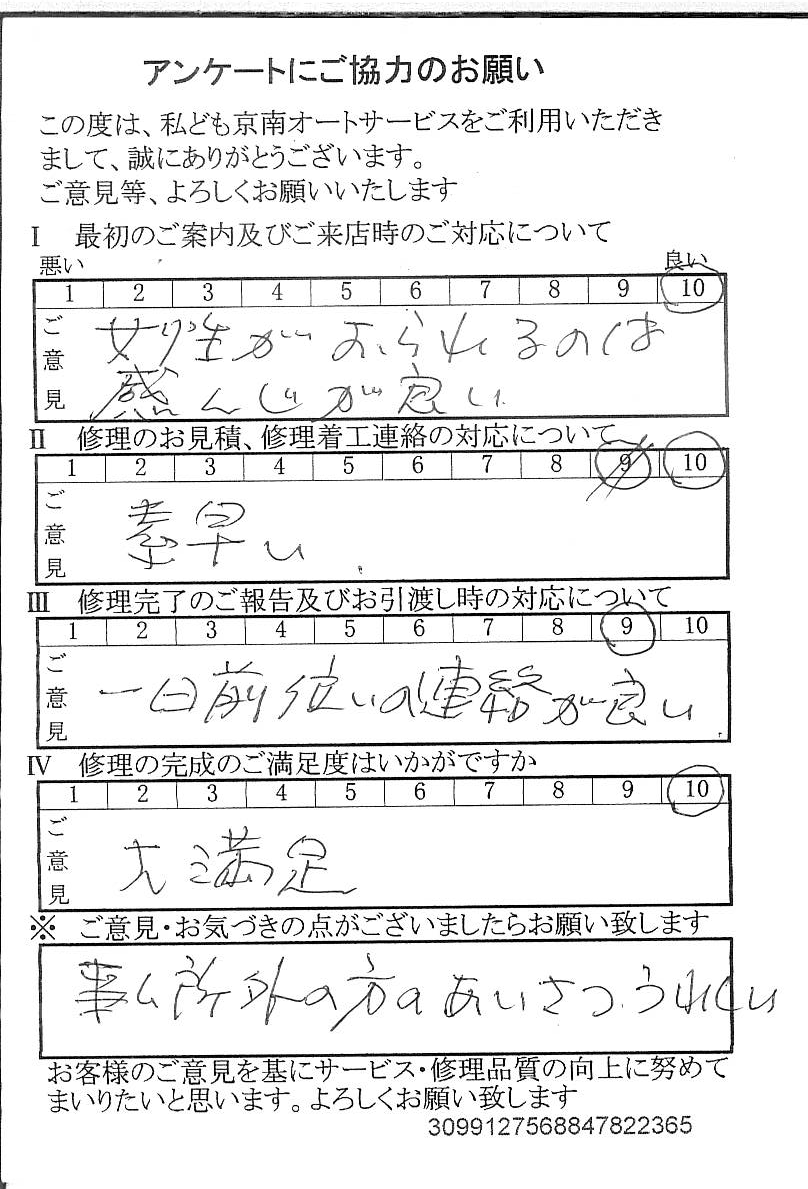 アンケートにご協力のお願い
この度は、私ども京南オートサービスをご利用いただき
まして、誠にありがとうございます。
ご意見等、よろしくお願いいたします
Ⅰ 最初のご案内及びご来店時のご対応について
悪い 良い
1 2 3 4 5 6 7 8 9 10
ご意見
女性がおられるのは
感んじが良い
Ⅱ 修理のお見積、修理着工連絡の対応について
1 2 3 4 5 6 7 8 9 10
ご意見
素早い
Ⅲ 修理完了のご報告及びお引渡し時の対応について
1 2 3 4 5 6 7 8 9 10
ご意見
一日前位いの連絡が良い
Ⅳ 修理の完成のご満足度はいかがですか
1 2 3 4 5 6 7 8 9 10
ご意見
大満足
※ ご意見・お気づきの点がございましたらお願い致します
事ム所外の方のあいさつうれしい
お客様のご意見を基にサービス・修理品質の向上に努めて
まいりたいと思います。よろしくお願い致します
3099127568847822365